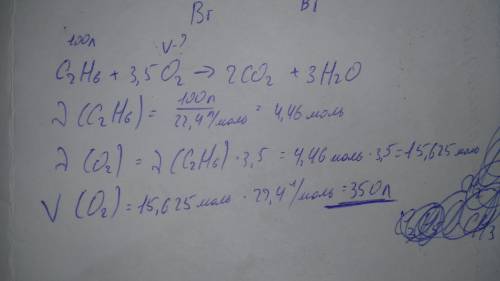 Br Br
100л V-?
C₂H₆ + 3,5O₂ → 2CO₂ + 3H₂O
ν(C₂H₆) = 100л / 22,4 л/моль = 4,46 моль
ν(O₂) = ν(C₂H₆) · 3,5 = 4,46 моль · 3,5 = 15,625 моль
V(O₂) = 15,625 моль · 22,4 л/моль = 350л